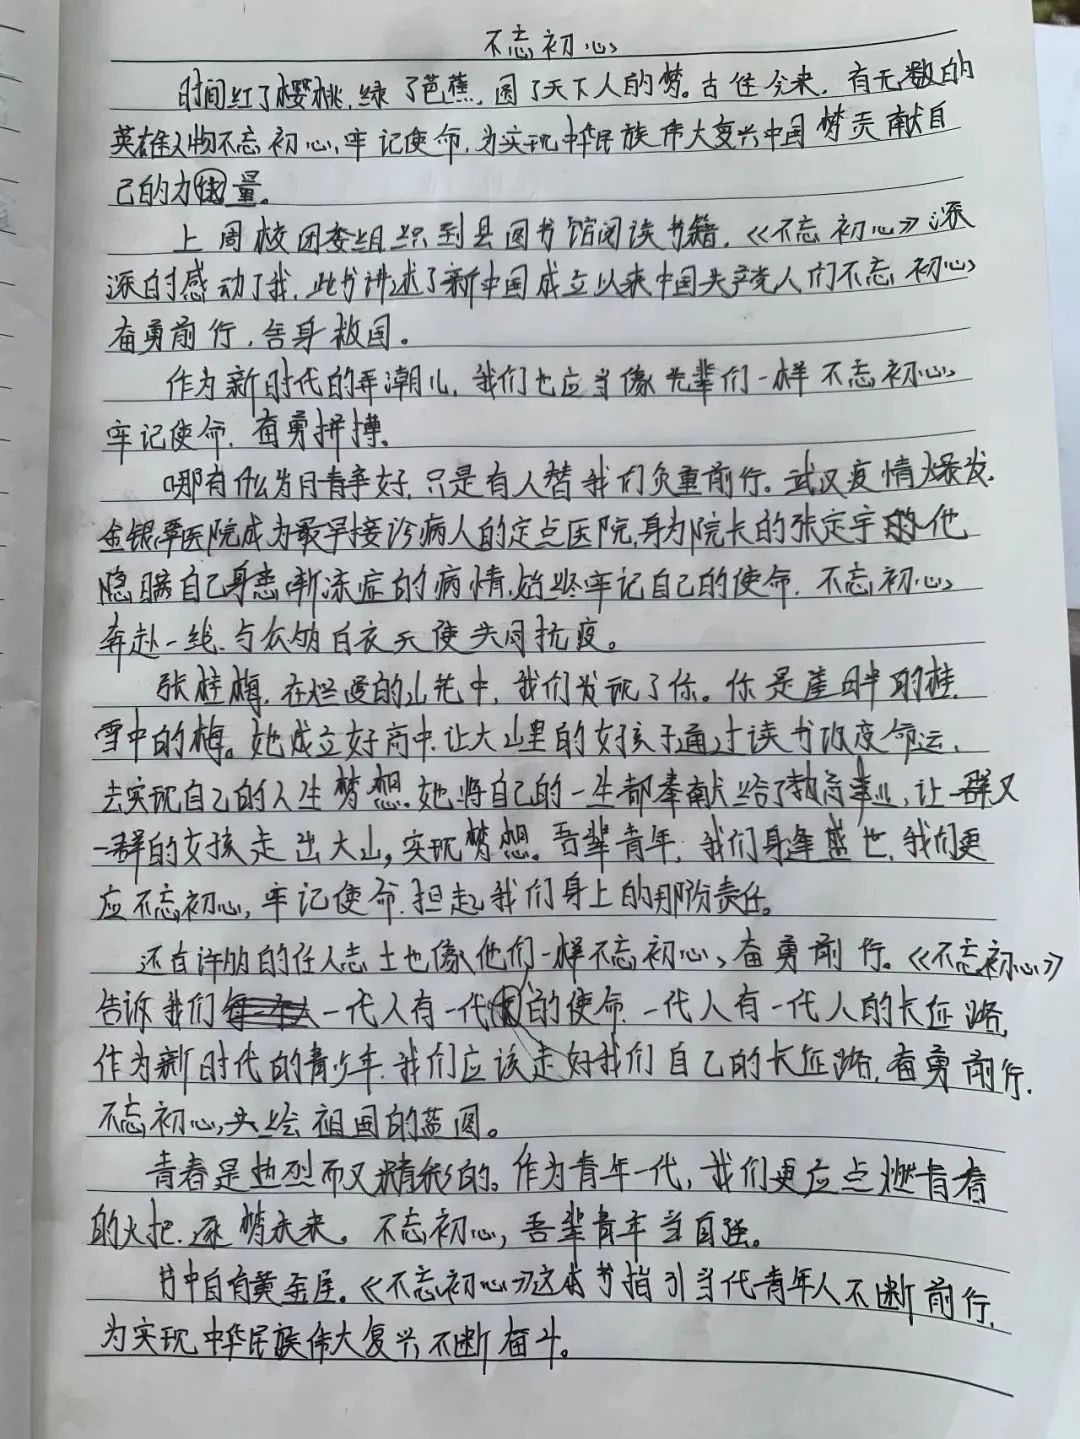 不忘初心
时间红了樱桃，绿了芭蕉，圆了天下人的梦。古往今来，有无数的
英雄人物不忘初心，牢记使命，为实现中华民族伟大复兴中国梦贡献自
己的力量。
上周校团委组织到县图书馆阅读书籍，《不忘初心》深
深的感动了我，此书讲述了新中国成立以来中国共产党人们不忘初心
奋勇前行，舍身救国。
作为新时代的弄潮儿，我们也应当像先辈们一样不忘初心，
牢记使命，奋勇拼搏。
哪有什么岁月静好，只是有人替我们负重前行。武汉疫情爆发，
金银潭医院成为最早接诊病人的定点医院，身为院长的张定宇他
隐瞒自己身患渐冻症的病情，始终牢记自己的使命，不忘初心，
奔赴一线，与众多白衣天使共同抗疫。
张桂梅，在烂漫的山花中，我们发现了你。你是崖畔的桂，
雪中的梅。她成立女子高中，让大山里的女孩子通过读书改变命运，
去实现自己的人生梦想。她将自己的一生都奉献给了教育事业，让一群又
一群的女孩走出大山，实现梦想。吾辈青年，我们身逢盛世，我们更
应不忘初心，牢记使命，担起我们身上的那份责任。
还有许多的仁人志士也像他们一样不忘初心，奋勇前行。《不忘初心》
告诉我们一代人有一代的使命，一代人有一代人的长征路，
作为新时代的青少年，我们应该走好我们自己的长征路，奋勇前行，
不忘初心，共绘祖国的蓝图。
青春是热烈而又精彩的。作为青年一代，我们更应点燃青春
的火把，逐梦未来。不忘初心，吾辈青年当自强。
书中自有黄金屋。《不忘初心》这本书指引当代青年人不断前行，
为实现中华民族伟大复兴不断奋斗。